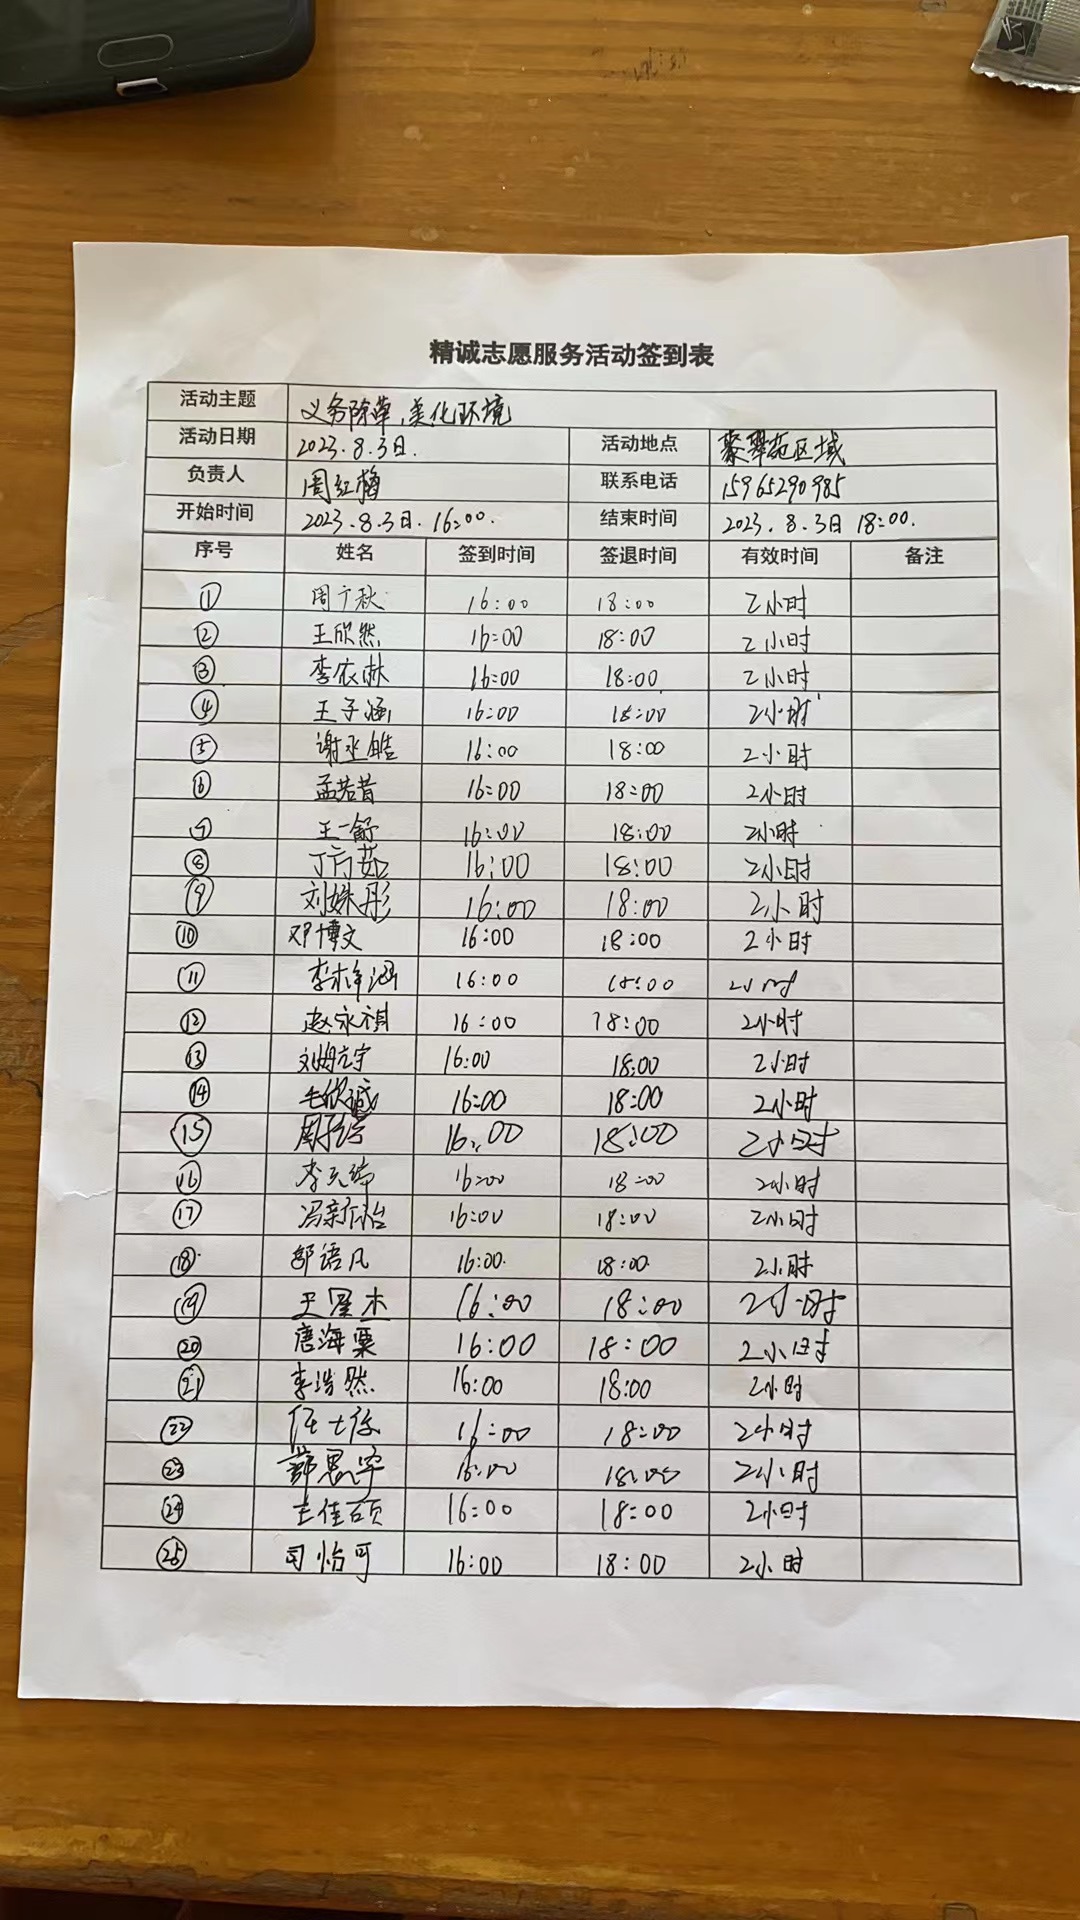 精诚志愿服务活动签到表
活动主题 义务除草、美化环境
活动日期 2023.8.3日. 活动地点 聚翠苑区域
负责人 周红梅 联系电话 15965290985
开始时间 2023.8.3日.16:00. 结束时间 2023.8.3日18:00.
序号 姓名 签到时间 签退时间 有效时间 备注
① 周广秋 16:00 18:00 2小时
② 王欣然 16:00 18:00 2小时
③ 李依淋 16:00 18:00 2小时
④ 王子涵 16:00 18:00 2小时
⑤ 谢丞皓 16:00 18:00 2小时
⑥ 孟若昔 16:00 18:00 2小时
⑦ 王一舒 16:00 18:00 2小时
⑧ 丁方茹 16:00 18:00 2小时
⑨ 刘姝彤 16:00 18:00 2小时
⑩ 邓博文 16:00 18:00 2小时
⑪ 16:00 18:00 2小时
⑫ 赵永祺 16:00 18:00 2小时
⑬ 16:00 18:00 2小时
⑭ 16:00 18:00 2小时
⑮ 16:00 18:00 2小时
⑯ 16:00 18:00 2小时
⑰ 冯新怡 16:00 18:00 2小时
⑱ 郜语凡 16:00. 18:00. 2小时
⑲ 16:00 18:00 2小时
⑳ 唐海粟 16:00 18:00 2小时
㉑ 李浩然 16:00 18:00 2小时
㉒ 16:00 18:00 2小时
㉓ 薛思宇 16:00 18:00 2小时
㉔ 王佳硕 16:00 18:00 2小时
㉕ 司怡可 16:00 18:00 2小时